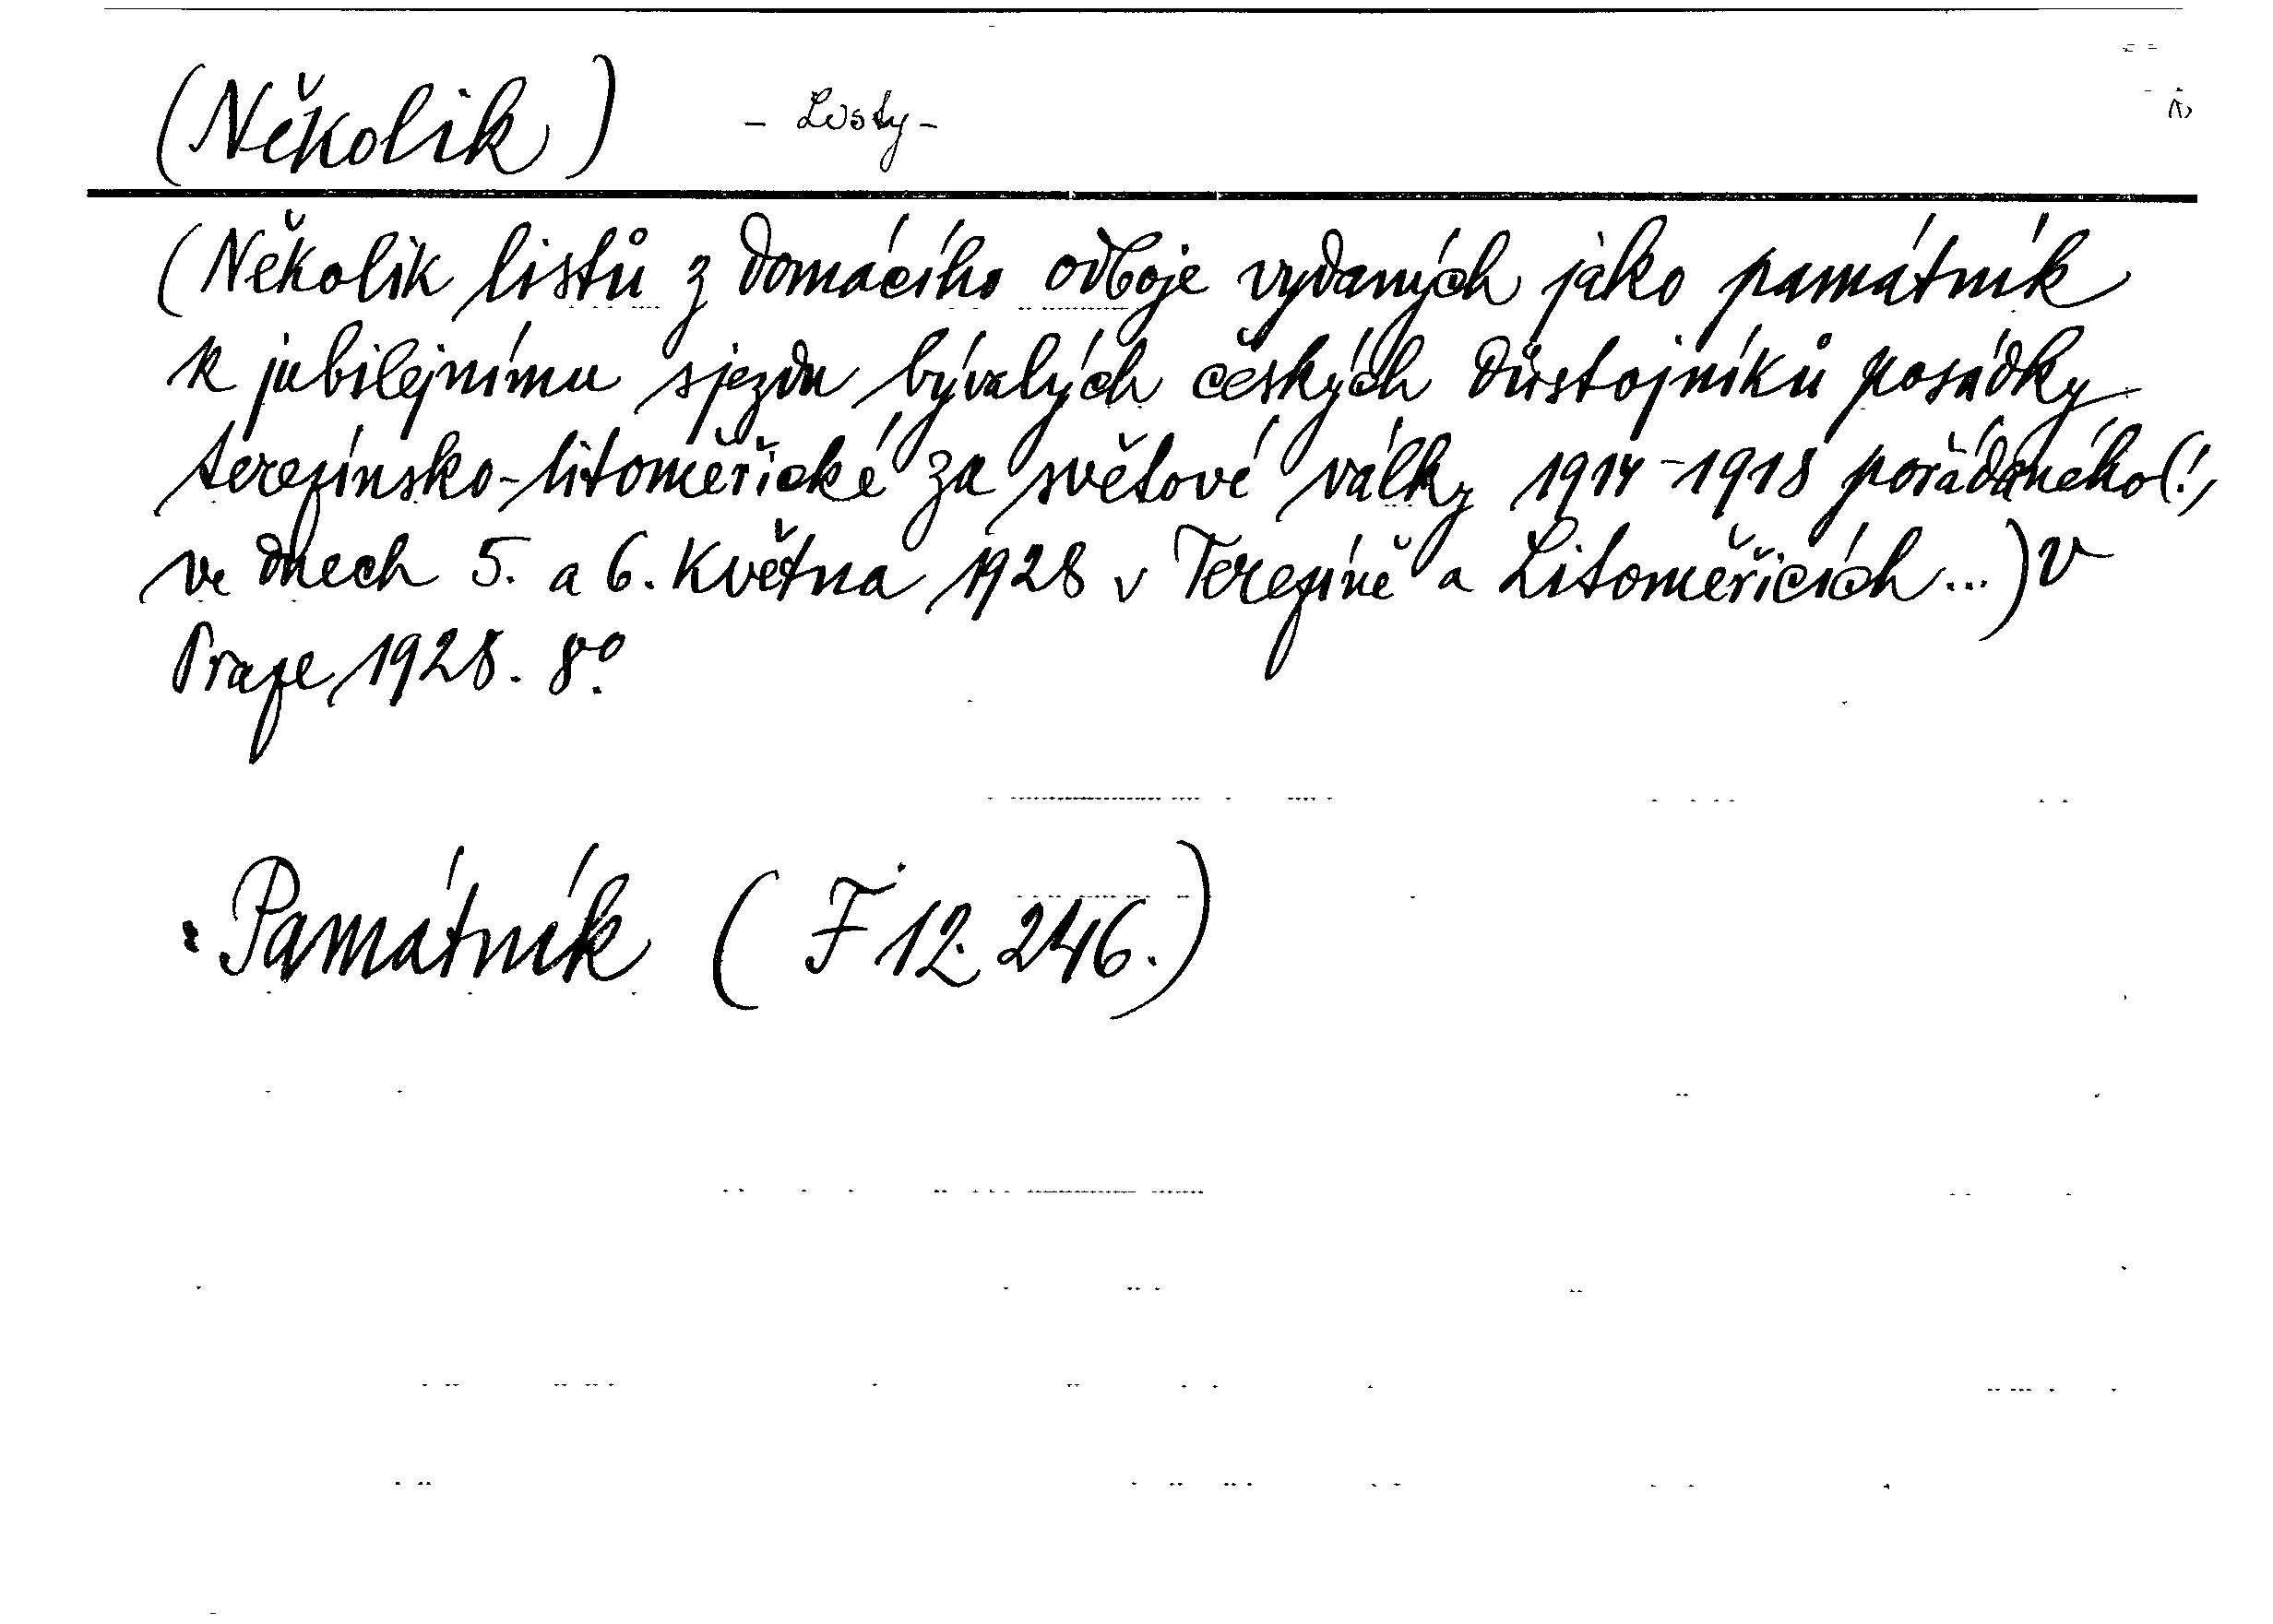 (Několik) - Listy -
(Několik listů z domácího odboje vydaných jako památník
k jubilejnímu sjezdu bývalých českých důstojníků posádky
terezínsko-litoměřické za světové války 1914-1918 pořádaného(!,
ve dnech 5. a 6. května 1928 v Terezíně a Litoměřicích...) V
Praze, 1928. 8°.
: Památník (F 12.246.)